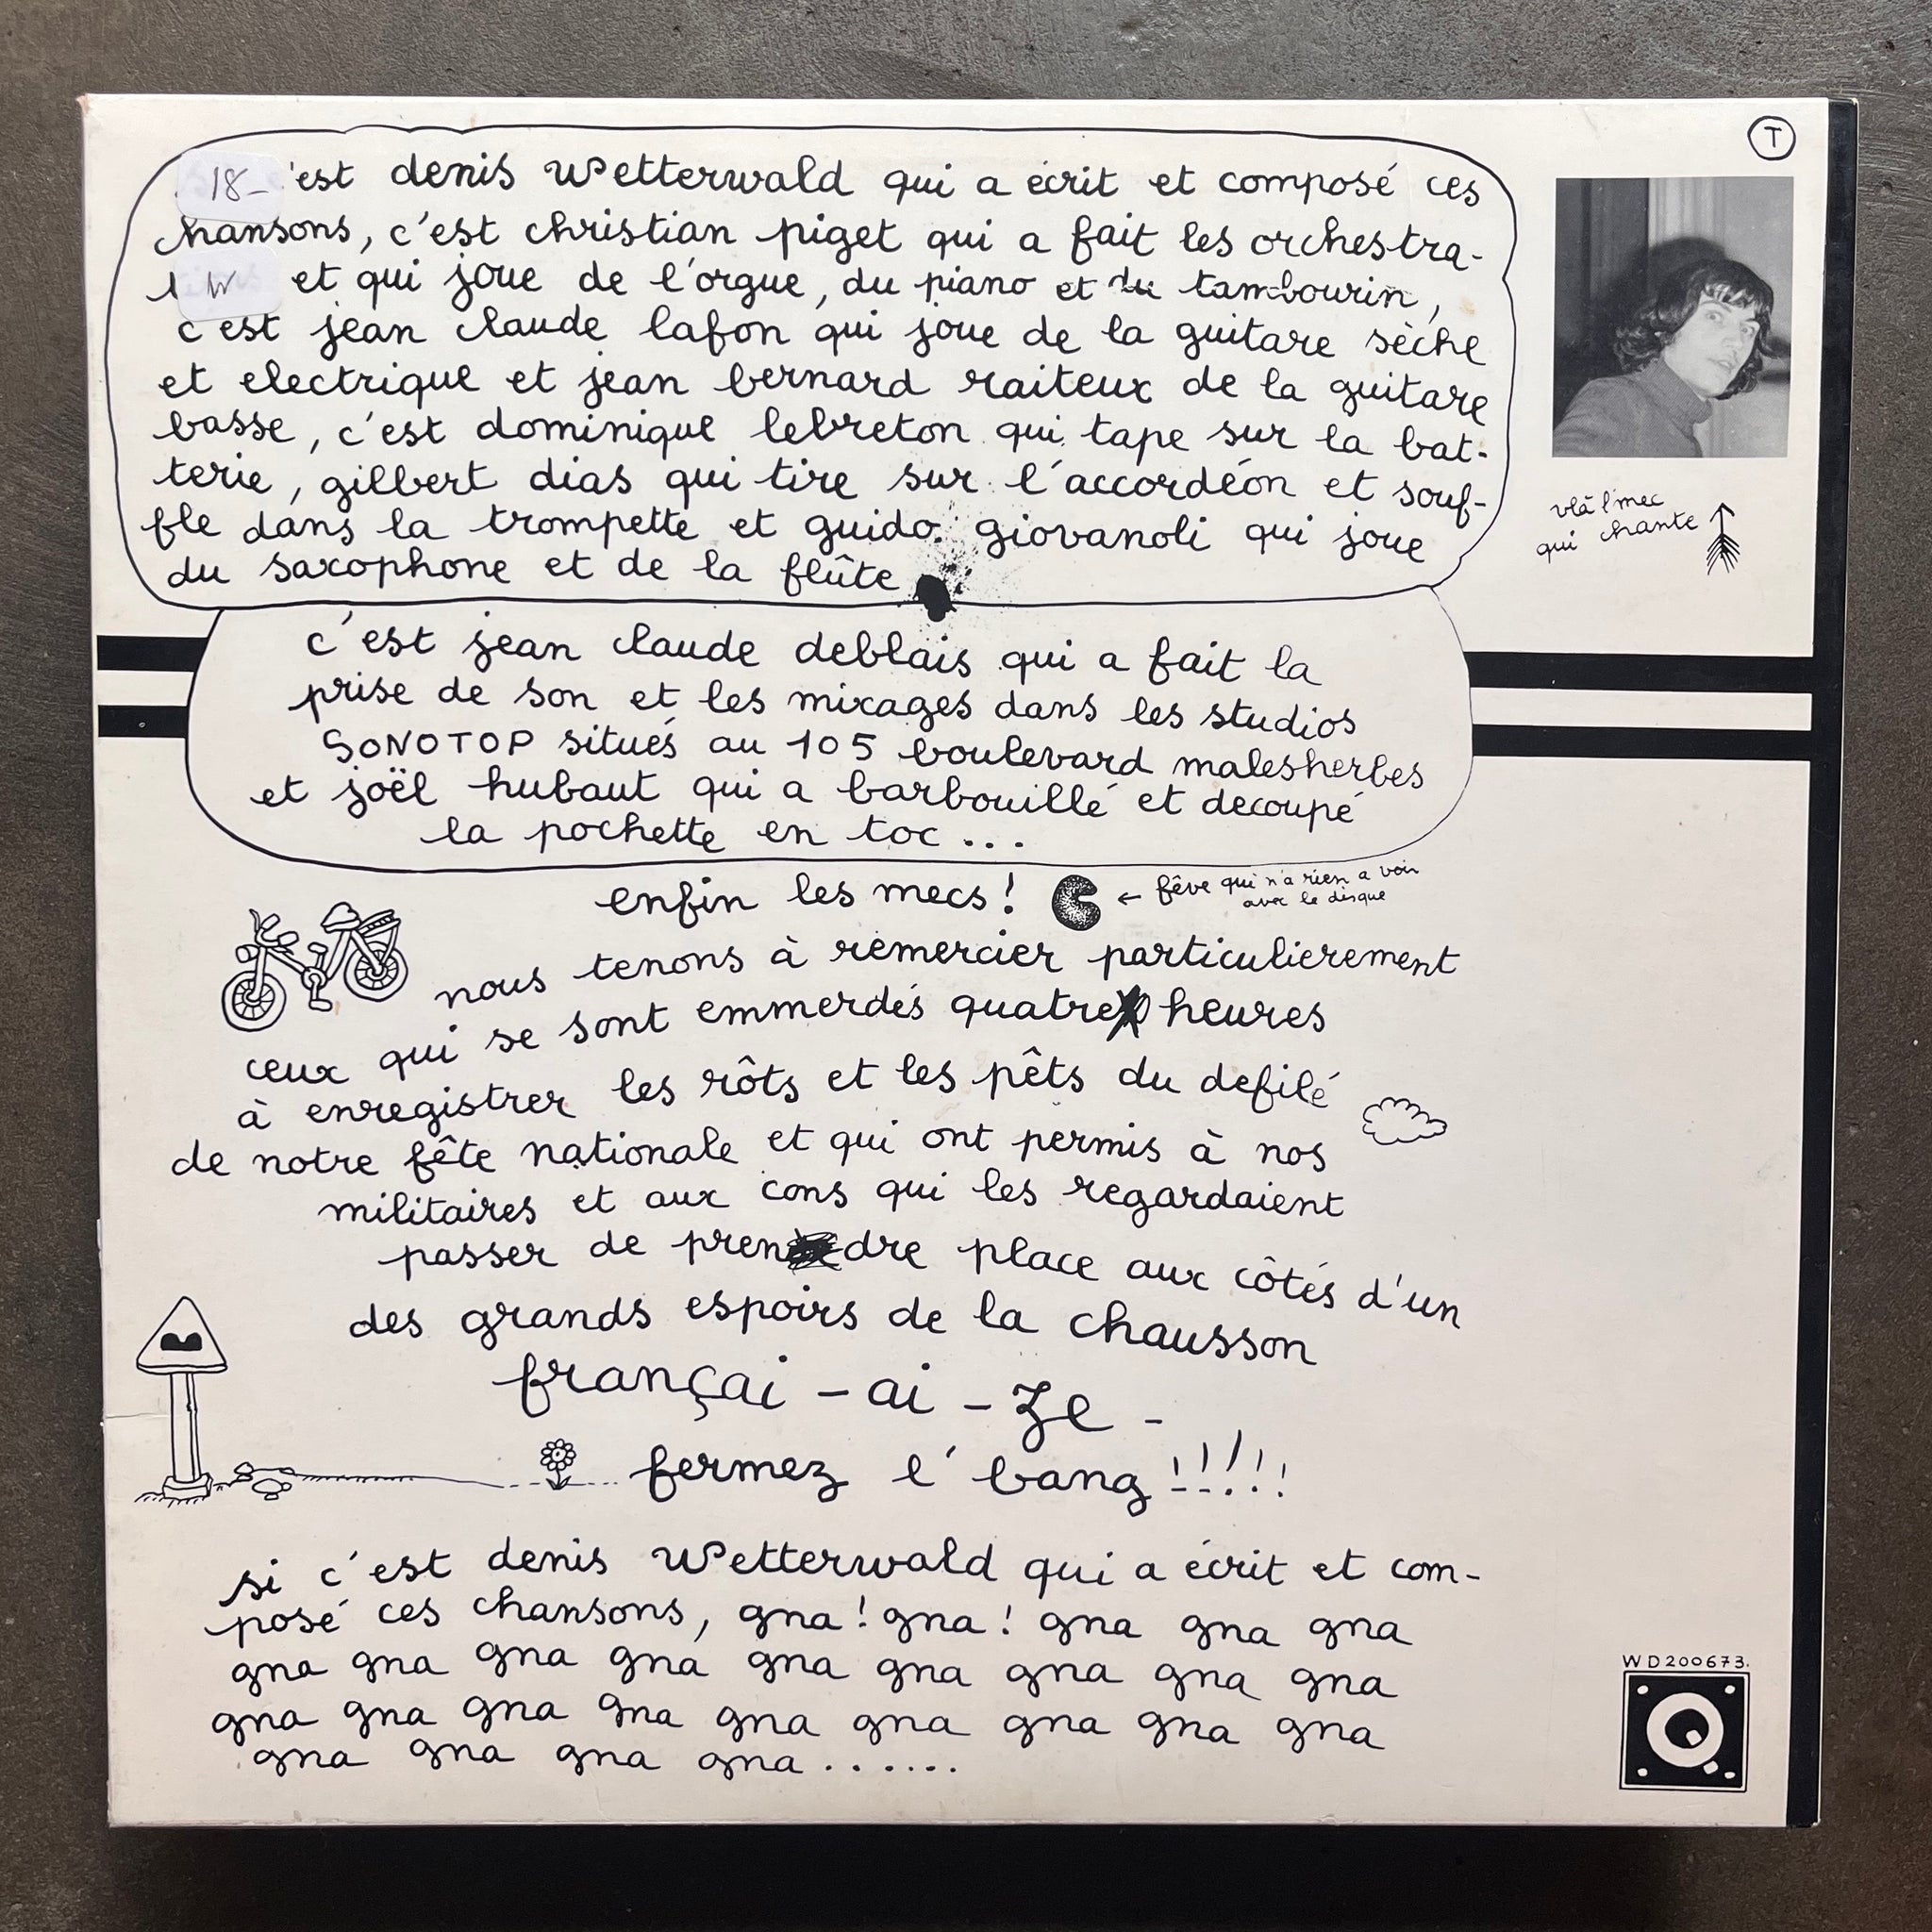 T
18-
'est denis wetterwald qui a écrit et composé ces
chansons, c'est christian piget qui a fait les orchestra-
W et qui joue de l'orgue, du piano et du tambourin,
c'est jean claude lafon qui joue de la guitare sèche
et electrique et jean bernard raiteux de la guitare
basse, c'est dominique lebreton qui tape sur la bat-
terie, gilbert dias qui tire sur l'accordéon et souf-
fle dans la trompette et guido giovanoli qui joue
du saxophone et de la flûte
vlà l'mec
qui chante
c'est jean claude deblais qui a fait la
prise de son et les mixages dans les studios
SONOTOP situés au 105 boulevard malesherbes
et joël hubaut qui a barbouillé et decoupé
la pochette en toc...
enfin les mecs !
← fêve qui n'a rien a voir
avec le disque
nous tenons à remercier particulierement
ceux qui se sont emmerdés quatre heures
à enregistrer les rôts et les pêts du defilé
de notre fête nationale et qui ont permis à nos
militaires et aux cons qui les regardaient
passer de prendre place aux côtés d'un
des grands espoirs de la chausson
françai - ai - ze -
fermez l' bang !!!!!
si c'est denis wetterwald qui a écrit et com-
posé ces chansons, gna ! gna ! gna gna gna
gna gna gna gna gna gna gna gna gna
gna gna gna gna gna gna gna gna gna
gna gna gna gna.......
WD200673.